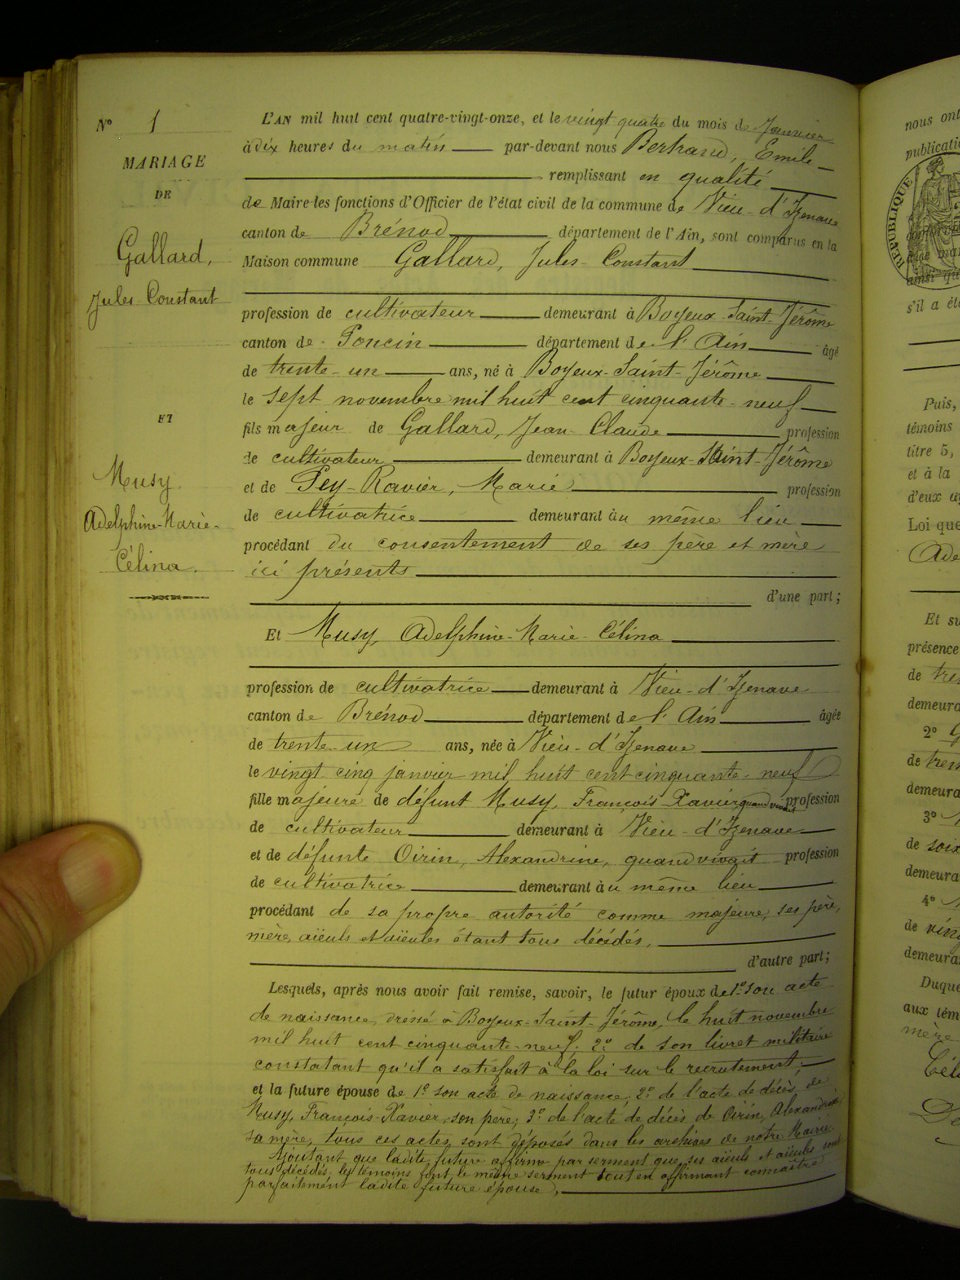 N° 1
MARIAGE
DE
Gallard,
Jules Constant
ET
Musy
Adelphine-Marie-
Célina.
L'AN mil huit cent quatre-vingt-onze, et le vingt quatre du mois de Janvier
à dix heures du matin par-devant nous Bertrand, Emile
remplissant en qualité
de Maire les fonctions d'Officier de l'état civil de la commune de Vieu-d'Izenave
canton de Brénod département de l'Ain, sont comparus en la
Maison commune Gallard, Jules Constant
profession de cultivateur demeurant à Boyeux-Saint-Jérôme
canton de Poncin département de l'Ain âgé
de trente-un ans, né à Boyeux-Saint-Jérôme
le sept novembre mil huit cent cinquante-neuf
fils majeur de Gallard, Jean-Claude profession
de cultivateur demeurant à Boyeux-Saint-Jérôme
et de Pey-Ravier, Marie profession
de cultivatrice demeurant au même lieu
procédant du consentement de ses père et mère
ici présents
d'une part;
Et Musy, Adelphine-Marie-Célina
profession de cultivatrice demeurant à Vieu-d'Izenave
canton de Brénod département de l'Ain âgée
de trente-un ans, née à Vieu-d'Izenave
le vingt cinq janvier mil huit cent cinquante-neuf
fille majeure de défunt Musy, François Xavier quand vivait profession
de cultivateur demeurant à Vieu-d'Izenave
et de défunte Oirin, Alexandrine, quand vivait profession
de cultivatrice demeurant au même lieu
procédant de sa propre autorité comme majeure, ses père,
mère, aïeuls et aïeules étant tous décédés,
d'autre part;
Lesquels, après nous avoir fait remise, savoir, le futur époux de 1° son acte
de naissance, dressé à Boyeux-Saint-Jérôme, le huit novembre
mil huit cent cinquante-neuf, 2° de son livret militaire
constatant qu'il a satisfait à la loi sur le recrutement;
et la future épouse de 1° son acte de naissance, 2° de l'acte de décès, de
Musy, François-Xavier, son père, 3° de l'acte de décès de Oirin, Alexandrine
sa mère, tous ces actes, sont déposés dans les archives de notre Mairie.
Ajoutant que ladite future affirme par serment que ses aïeuls et aïeules sont
tous décédés, les témoins font le même serment tout en affirmant connaître
parfaitement ladite future épouse,
nous ont
publicatio
RÉPUBLIQUE
s'il a été
Puis,
témoins
titre 5,
et à la
d'eux a
Loi que
Ade
Et su
présence
de tren
demeura
2°
de tren
demeura
3°
de soix
demeura
4°
de ving
demeura
Duque
aux tém
mère
Céli